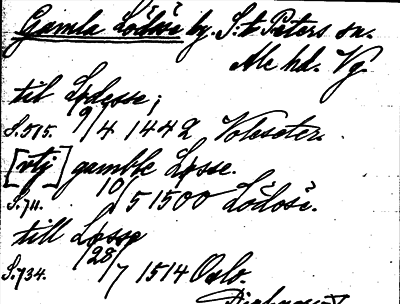 Gamla Lödöse by. S:t Peters sn.
Ale hd. Vg.
til Lødesse;
S.515. 9/4 1442
[vtj] gamble Løsse.
S.711. 10/5 1500 Lödöse.
till Løsse
S.734. 28/7 1514 Oslo.